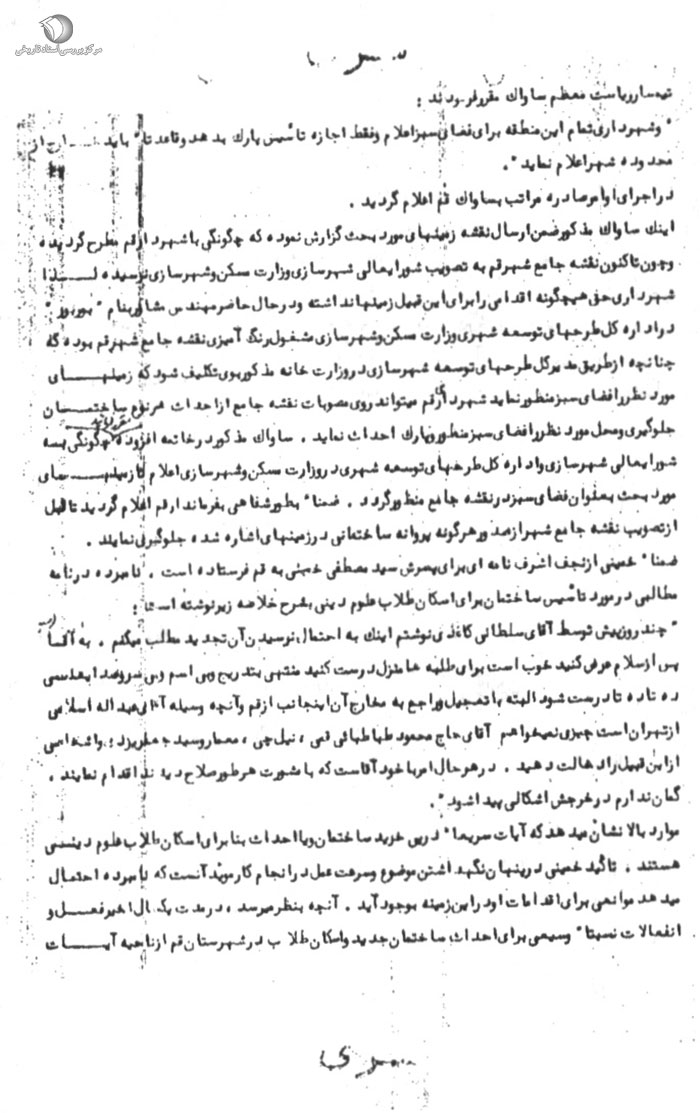 مرکز بررسی اسناد تاریخی
سری
تیمسار ریاست معظم ساواک مقرر فرمودند :
" وشهرداری تمام این منطقه برای فضای سبز اعلام و فقط اجازه تأسیس پارک بدهد و قاعدتا" باید خارج از
محدوده شهر اعلام نماید ".
در اجرای اوامر صادره مراتب بساواک قم اعلام گردید .
اینک ساواک مذکور ضمن ارسال نقشه زمینهای مورد بحث گزارش نموده که چگونگی با شهردار قم مطرح گردیده
وچون تاکنون نقشه جامع شهر قم به تصویب شورایعالی شهرسازی وزارت مسکن وشهرسازی نرسیده لذا
شهرداری حق هیچگونه اقدامی را برای این قبیل زمینها نداشته و در حال حاضر مهندس مشاور بنام "
در اداره کل طرحهای توسعه شهری وزارت مسکن وشهرسازی مشغول رنگ آمیزی نقشه جامع شهر قم بوده که
چنانچه از طریق مدیر کل طرحهای توسعه شهرسازی در وزارت خانه مذکور بوی تکلیف شود که زمینهای
مورد نظر را فضای سبز منظور نماید شهردار قم میتواند روی مصوبات نقشه جامع از احداث هر نوع ساختمان
جلوگیری و محل مورد نظر را فضای سبز منظور و پارک احداث نماید . ساواک مذکور در خاتمه افزوده چگونگی به
شورایعالی شهرسازی و اداره کل طرحهای توسعه شهری در وزارت مسکن وشهرسازی اعلام تا زمینهای
مورد بحث بعنوان فضای سبز در نقشه جامع منظور گردد . ضمنا" بطور شفاهی بفرماندار قم اعلام گردید تا قبل
از تصویب نقشه جامع شهر از صدور هرگونه پروانه ساختمانی در زمینهای اشاره شده جلوگیری نمایند .
ضمنا" خمینی از نجف اشرف نامه ای برای پسرش سید مصطفی خمینی به قم فرستاده است . نامبرده در نامه
مطالبی در مورد تأسیس ساختمان برای اسکان طلاب علوم دینی بشرح خلاصه زیر نوشته است :
" چند روز پیش توسط آقای سلطانی کاغذی نوشتم اینک به احتمال نرسیدن آن تجدید مطلب میکنم . به آقا
پس از سلام عرض کنید خوب است برای طلبه ها منزل درست کنید منتهی بتدریج وبی اسم وبی سروصدا بعد سی
ده تاده تا درست شود البته با تعجیل و راجع به مخارج آن اینجانب از قم وآنچه وسیله آقای عبداله اسلامی
از تهران است چیزی نمیخواهم آقای حاج محمود طباطبائی قمی ، نیل چی ، معمار وسید جعفر یزدی واشخاصی
از این قبیل را دخالت دهید . در هر حال امر با خود آقاست که با مشورت هر طور صلاح دیدند اقدام نمایند .
گمان ندارم در خرجش اشکالی پیدا شود ".
موارد بالا نشان میدهد که آیات سریعا" در پی خرید ساختمان ویا احداث بنا برای اسکان طلاب علوم دینی
هستند . تأکید خمینی در پنهان نگهداشتن موضوع وسرعت عمل در انجام کار موید آنست که نامبرده احتمال
میدهد موانعی برای اقدامات او در این زمینه بوجود آید . آنچه بنظر میرسد ، در مدت یکسال اخیر فعل و
انفعالات نسبتا" وسیعی برای احداث ساختمان جدید واسکان طلاب در شهرستان قم از ناحیه آیات
سری